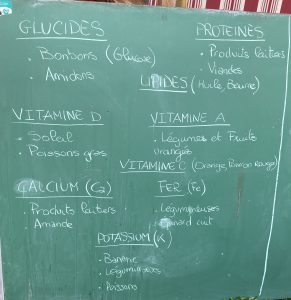 GLUCIDES
. Bonbons (Glucose)
. Amidons
PROTEINES
. Produits laitiers
. Viandes
LIPIDES (Huile, Beurre)
VITAMINE D
. Soleil
. Poissons gras
VITAMINE A
. Légumes et Fruits
oranges
VITAMINE C (Orange, Poivron Rouge)
CALCIUM (Ca)
. Produits laitiers
. Amande
FER (Fe)
. Légumineuses
. cuit
POTASSIUM (K)
. Banane
. Légumineuses
. Poissons